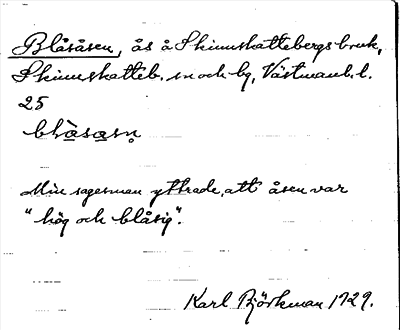 Blåsåsen, ås å Skinnskattebergs bruk,
Skinnskatteb. sn och bg, Västmanl. l.
25
blåsåsn̥
Min sagesman yttrade, att åsen var
"hög och blåsig".
Karl Björkman 1929.